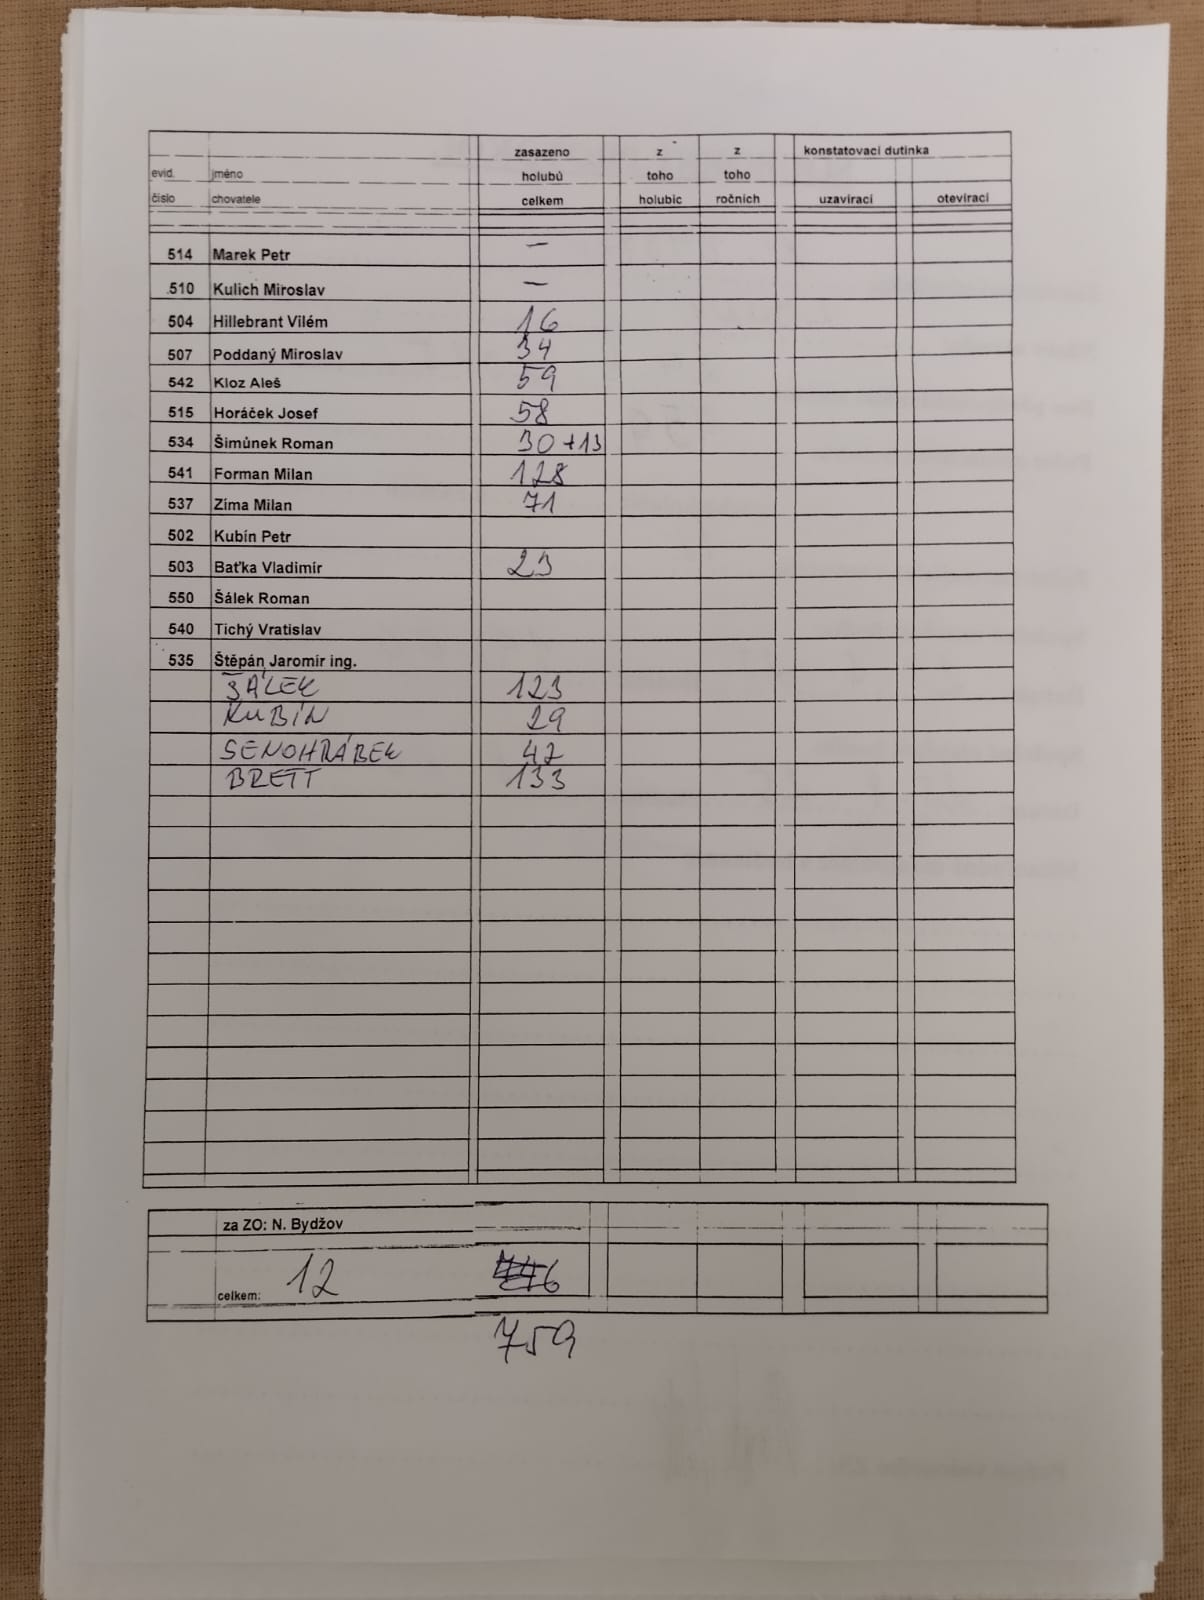 zasazeno z z konstatovaci dutinka
evid. jméno holubů toho toho
číslo chovatele celkem holubic ročních uzavírací otevírací
514 Marek Petr —
510 Kulich Miroslav —
504 Hillebrant Vilém 16
507 Poddaný Miroslav 34
542 Kloz Aleš 59
515 Horáček Josef 58
534 Šimůnek Roman 30+13
541 Forman Milan 128
537 Zima Milan 71
502 Kubín Petr
503 Baťka Vladimír 23
550 Šálek Roman
540 Tichý Vratislav
535 Štěpán Jaromír ing.
ŠÁLEK 123
KUBÍN 29
SENOHRÁBEK 42
BRETT 133
za ZO: N. Bydžov
celkem: 12 746
759